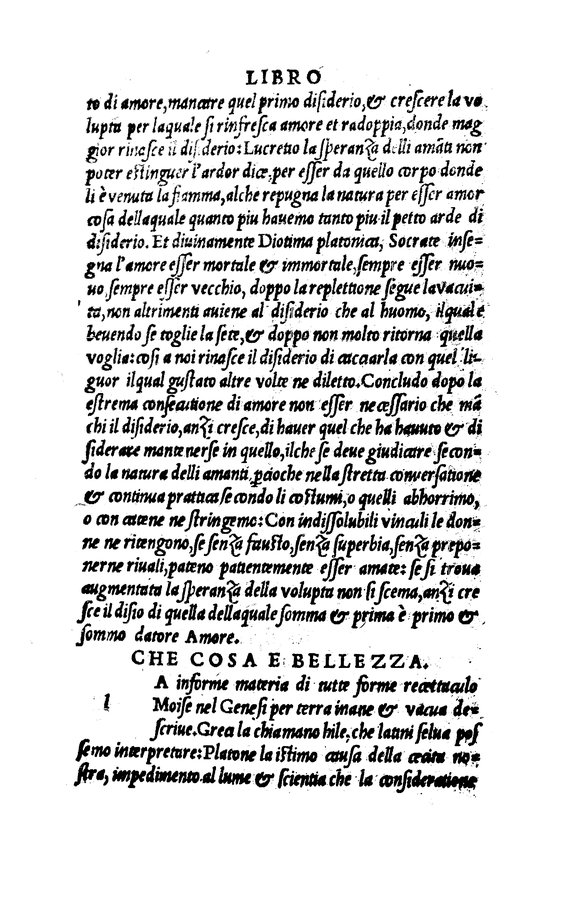 LIBRO
to di amore, mancare quel primo disiderio, & crescere la vo
lupta per laquale si rinfresca amore et radoppia, donde mag
gior rinasce il disiderio: Lucretio la speranza delli amāti non
poter estinguer l'ardor dice, per esser da quello corpo donde
li è venuta la fiamma, alche repugna la natura per esser amor
cosa dellaquale quanto piu hauemo tanto piu il petto arde di
disiderio. Et diuinamente Diotima platonica, Socrate inse=
gna l'amore esser mortale & immortale, sempre esser nuo=
uo, sempre esser vecchio, doppo la replettione segue la vacui=
ta, non altrimenti auiene al disiderio che al huomo, ilquale
beuendo se toglie la sete, & doppo non molto ritorna quella
voglia: cosi a noi rinasce il disiderio di cacciarla con quel li=
quor ilqual gustato altre volte ne diletto. Concludo dopo la
estrema consecutione di amore non esser necessario che mā
chi il disiderio, anzi cresce, di hauer quel che ha hauuto & di
siderare mantenerse in quello, ilche se deue giudicare secon=
do la natura delli amanti, ꝑcioche nella stretta conuersatione
& continua prattica secondo li costumi, o quelli abhorrimo,
o con catene ne stringemo: Con indissolubili vinculi le don=
ne ne ritengono, se senza fausto, senza superbia, senza prepo=
nerne riuali, pateno patientemente esser amate: se si troua
augmentata la speranza della volupta non si scema, anzi cre
sce il disio di quella dellaquale somma & prima è primo &
sommo datore Amore.
CHE COSA E BELLEZZA.
l A informe materia di tutte forme recettaculo
Moise nel Genesi per terra inane & vacua de=
scriue. Greca la chiamano hile, che latini selua pos
semo interpretare: Platone la istimo causa della cecita no=
stra, impedimento al lume & scientia che la consideratione